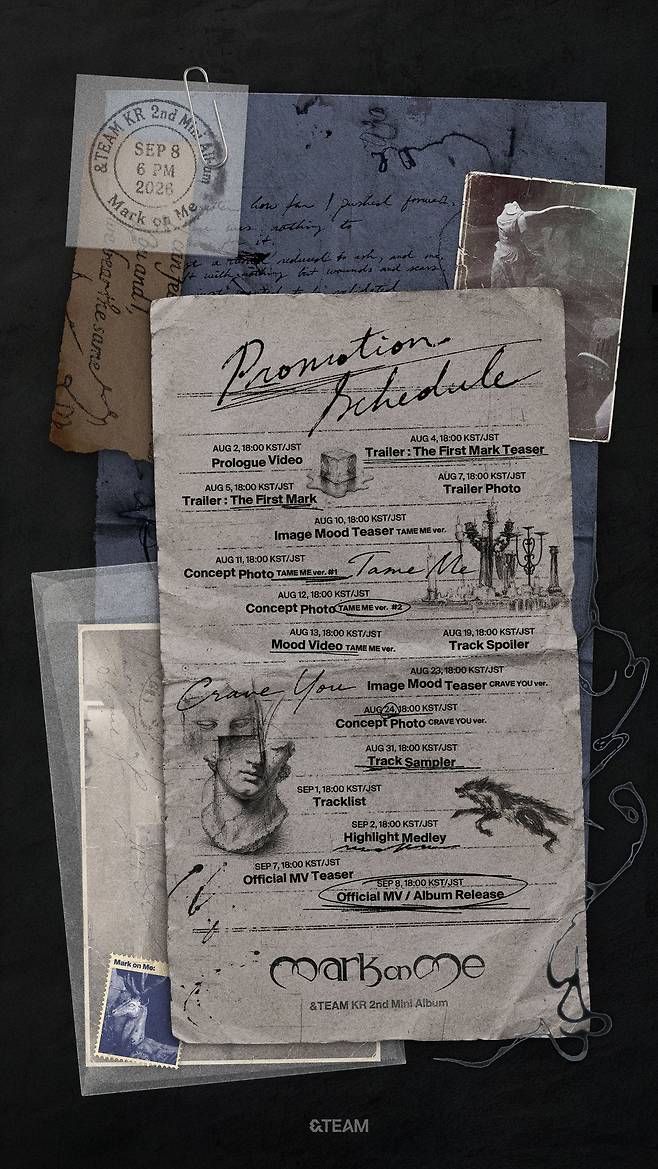 &TEAM KR 2nd Mini Album
SEP 8
6 PM
2026
Mark on Me
how far I pushed forward,
nothing to
it.
reduced to ash, and me
with nothing but wounds and scars
Promotion
Schedule
AUG 2, 18:00 KST/JST
Prologue Video
AUG 4, 18:00 KST/JST
Trailer : The First Mark Teaser
AUG 5, 18:00 KST/JST
Trailer : The First Mark
AUG 7, 18:00 KST/JST
Trailer Photo
AUG 10, 18:00 KST/JST
Image Mood Teaser TAME ME ver.
AUG 11, 18:00 KST/JST
Concept Photo TAME ME ver. #1
Tame Me
AUG 12, 18:00 KST/JST
Concept Photo TAME ME ver. #2
AUG 13, 18:00 KST/JST
Mood Video TAME ME ver.
AUG 19, 18:00 KST/JST
Track Spoiler
Crave You
AUG 23, 18:00 KST/JST
Image Mood Teaser CRAVE YOU ver.
AUG 24, 18:00 KST/JST
Concept Photo CRAVE YOU ver.
AUG 31, 18:00 KST/JST
Track Sampler
SEP 1, 18:00 KST/JST
Tracklist
SEP 2, 18:00 KST/JST
Highlight Medley
SEP 7, 18:00 KST/JST
Official MV Teaser
SEP 8, 18:00 KST/JST
Official MV / Album Release
Mark on Me
&TEAM KR 2nd Mini Album
Mark on Me:
&TEAM